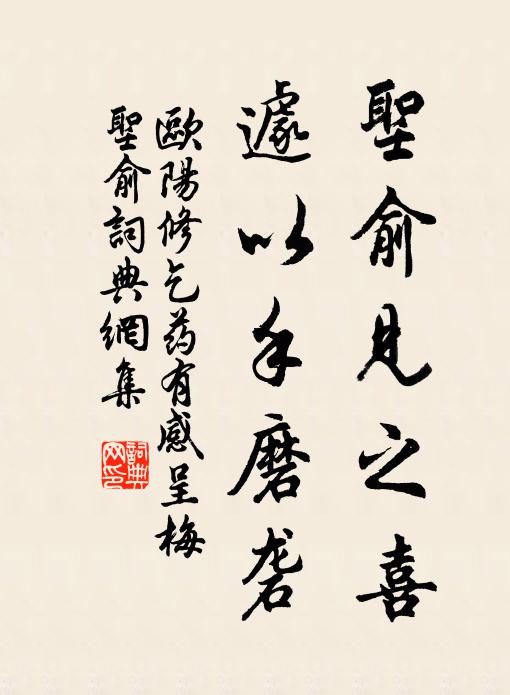 聖俞見之喜
遽以手磨砻
歐陽修乞药有感呈梅
聖俞詞典網集
詞典网印